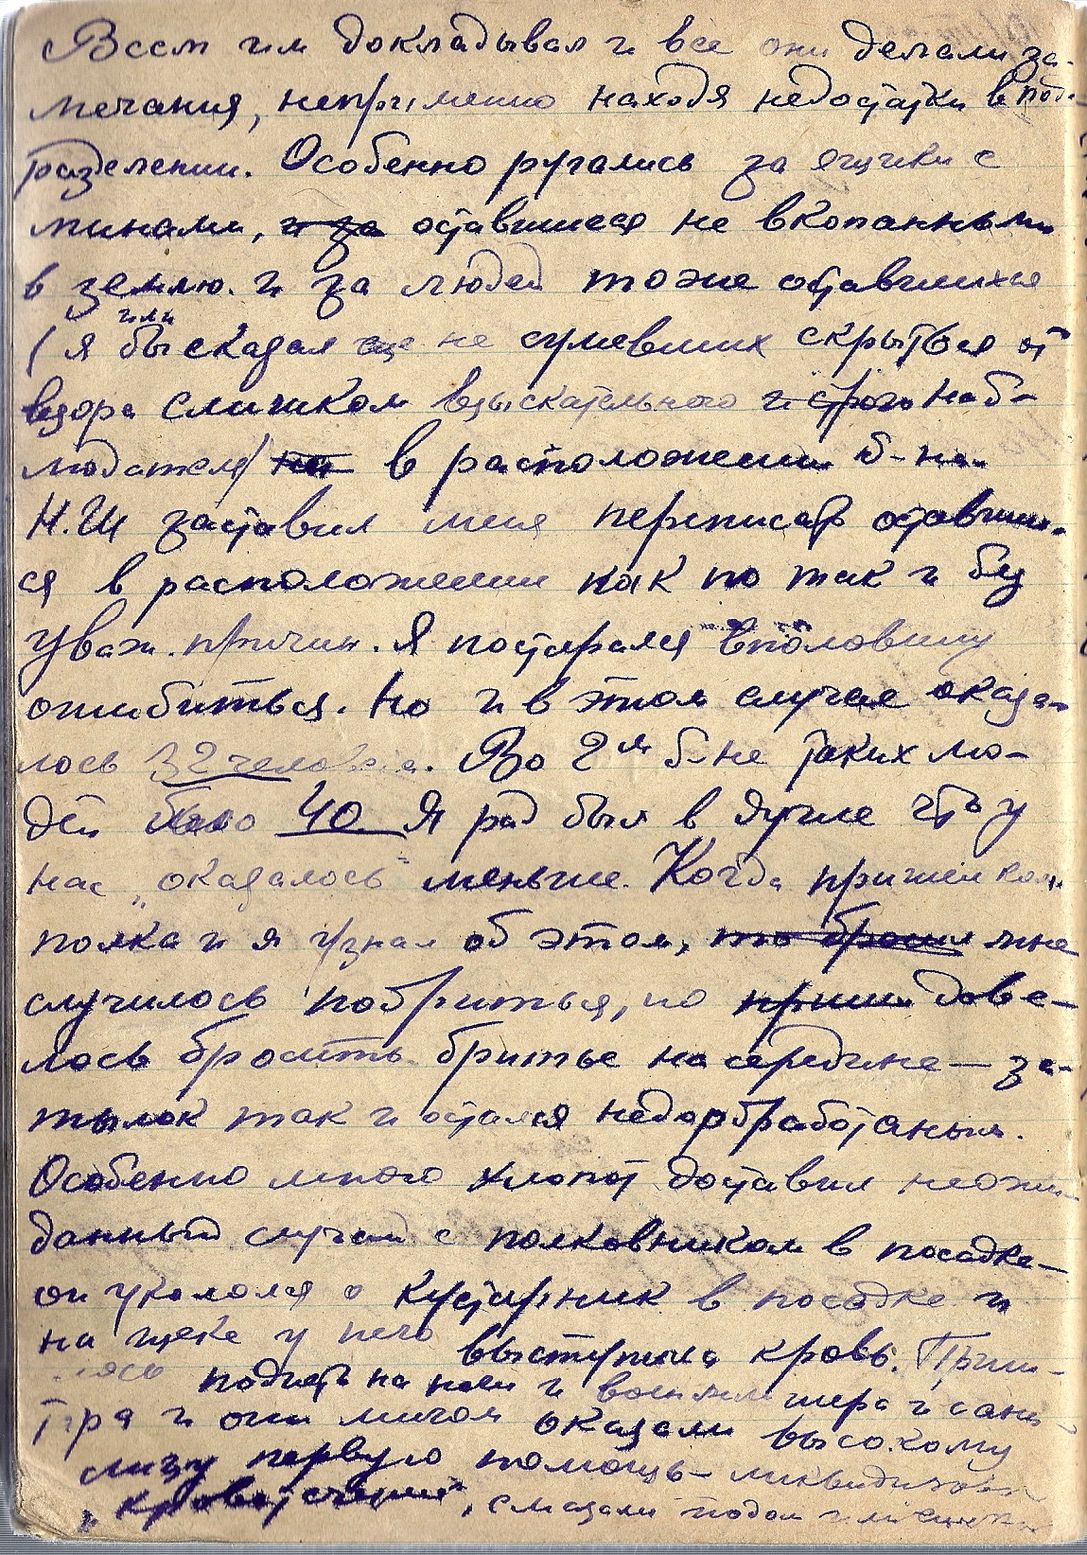 Всем им докладывал и все они делали за-
мечания, непременно находя недостатки в под-
разделении. Особенно ругались за ящики с
минами, и за оставшиеся не вкопанными
в землю. и за людей тоже оставшихся
или
(я бы сказал еще не сумевших скрыться от
взора слишком взыскательного и строго наб-
людателя) на в расположении б-на.
Н.Ш заставил меня переписать оставших-
ся в расположении как по так и без
уваж. причин. Я постарался вполовину
ошибиться. Но и в этом случае оказа-
лось 32 человека. Во 2м б-не таких лю-
дей было 40. Я рад был в душе что у
нас „оказалось" меньше. Когда пришел ком.
полка и я узнал об этом, то бросил мне
случилось побриться, но пришл дове-
лось бросить бритье на середине — за-
тылок так и остался недообработаным.
Особенно много хлопот доставил неожи-
данный случай с полковником в посадке —
он укололся о кустарник в посадке и
на щеке у него выступила кровь. Приш-
лось поднять на ноги и и сани-
тара и они мигом оказали высокому
лицу первую помощь — ликвидировали
„кровотечение", смазали иодом и